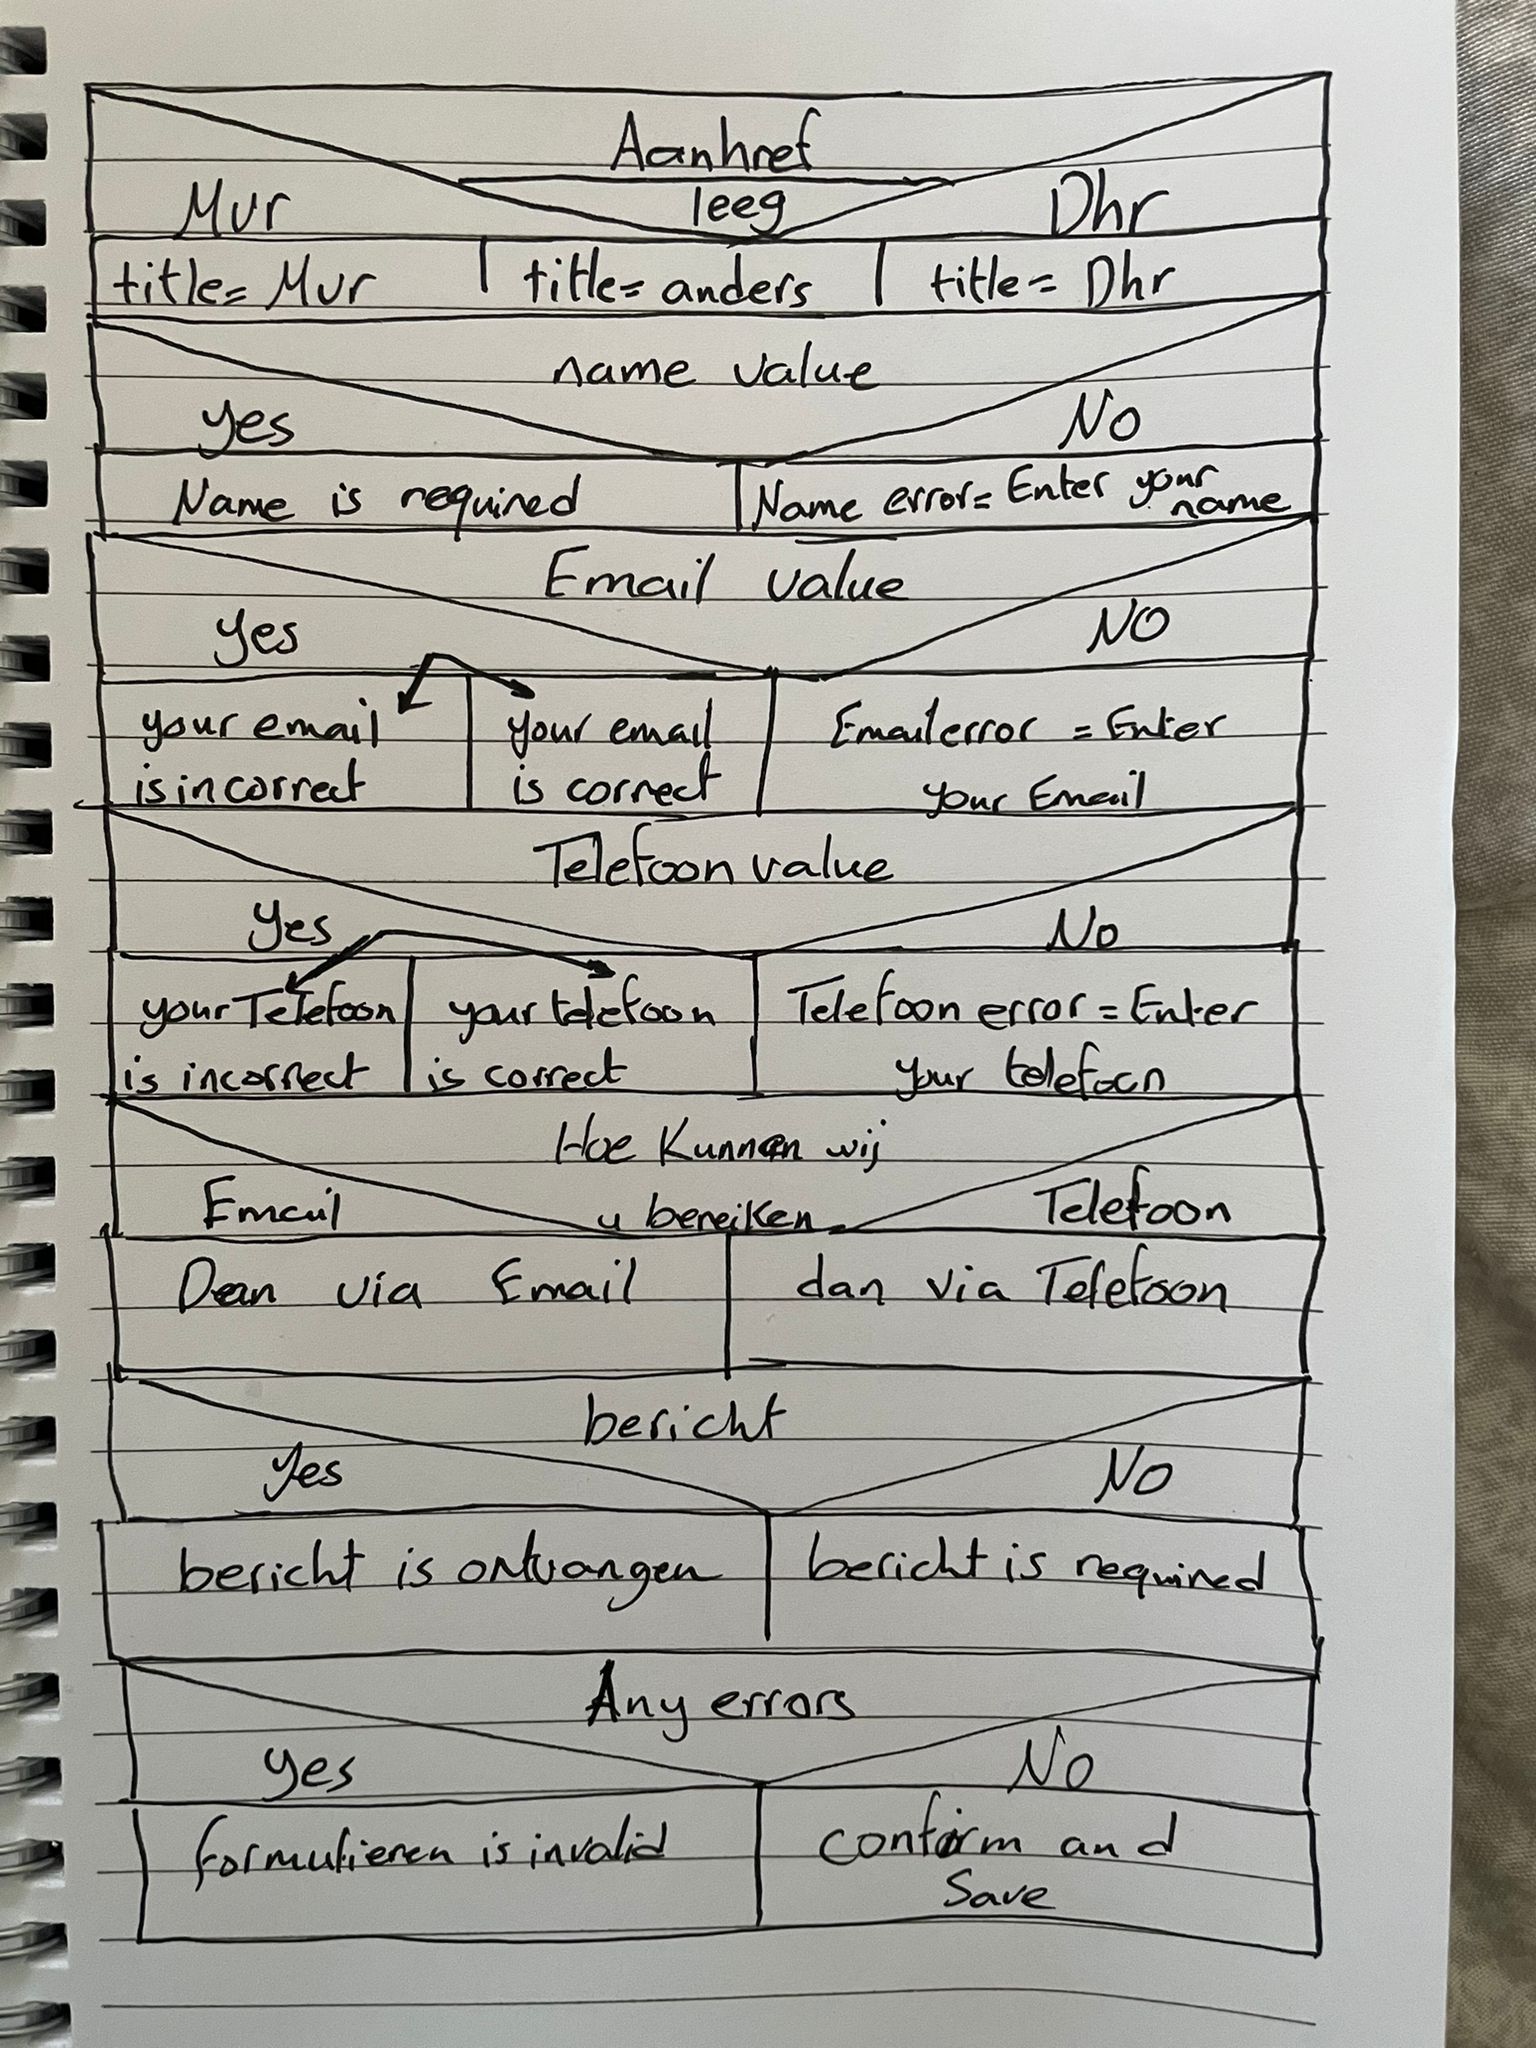 Aanhref
Mvr leeg Dhr
title= Mvr title= anders title= Dhr
name value
yes No
Name is required Name error= Enter your name
Email value
yes NO
your email your email Email error = Enter
is incorrect is correct your Email
Telefoon value
Yes No
your Telefoon your telefoon Telefoon error = Enter
is incorrect is correct your telefoon
Hoe Kunnen wij
Email u bereiken Telefoon
Dan via Email dan via Telefoon
bericht
Yes NO
bericht is ontvangen bericht is required
Any errors
yes No
formulieren is invalid confirm and
Save